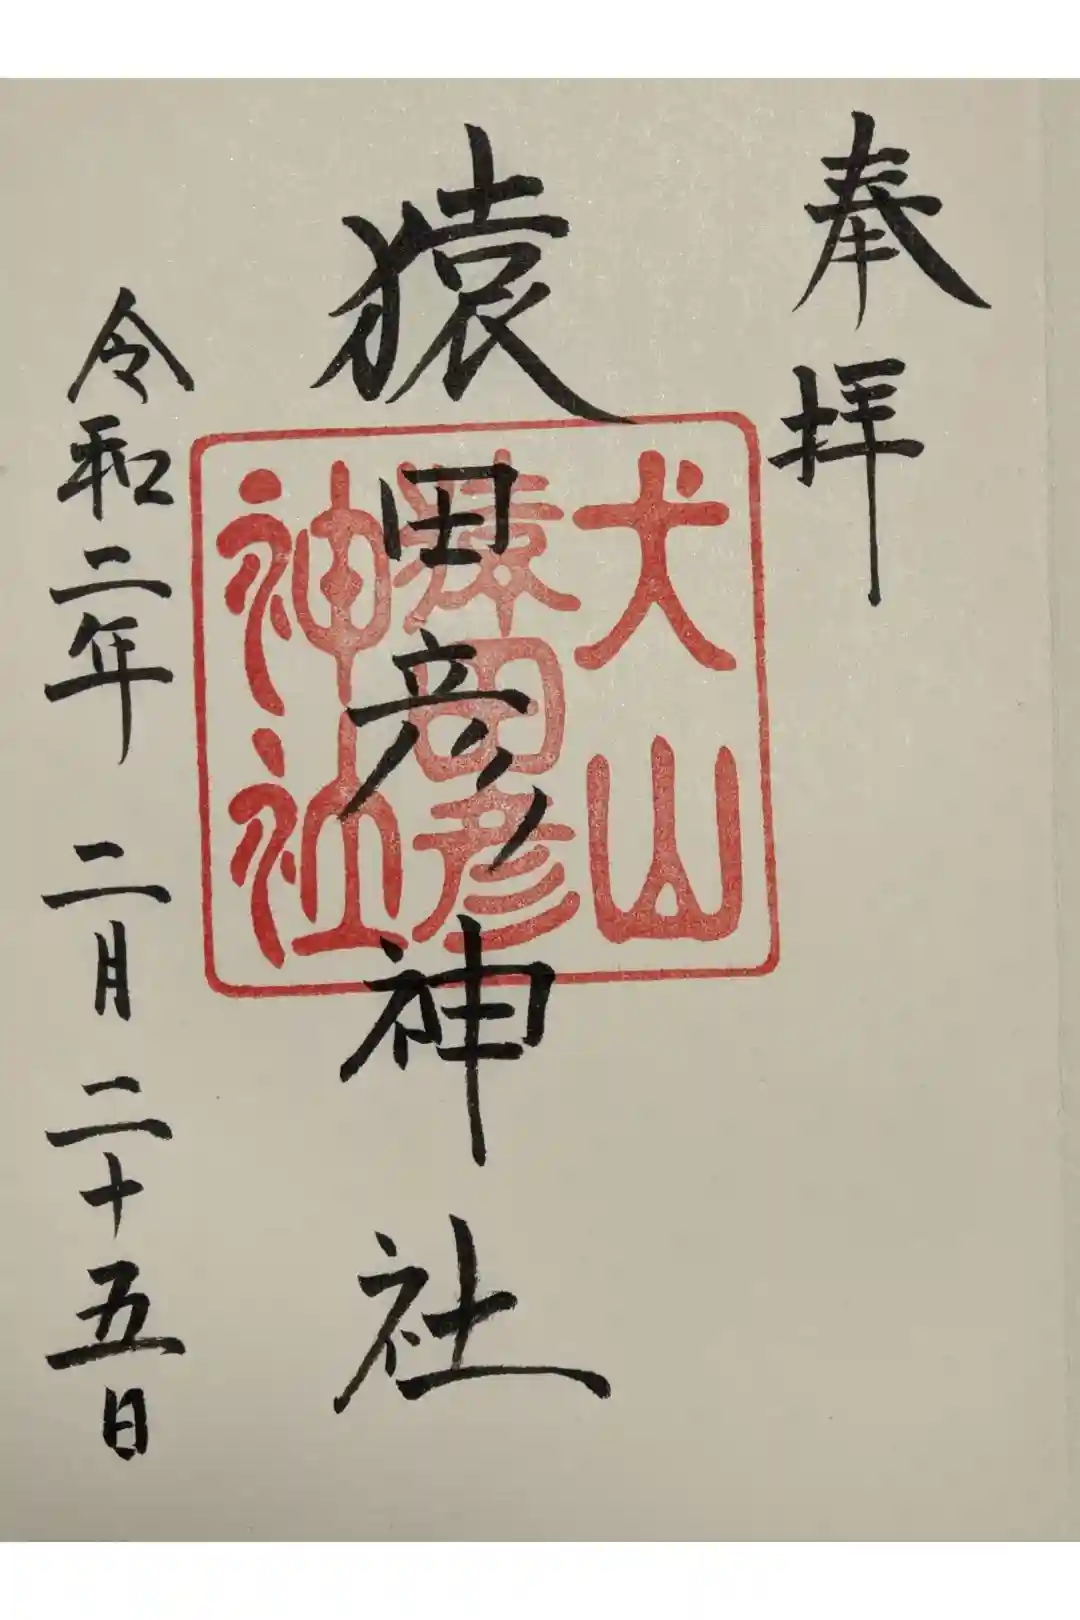 奉拝
猿田彦神社
犬山
猿田彦
神社
令和二年二月二十五日